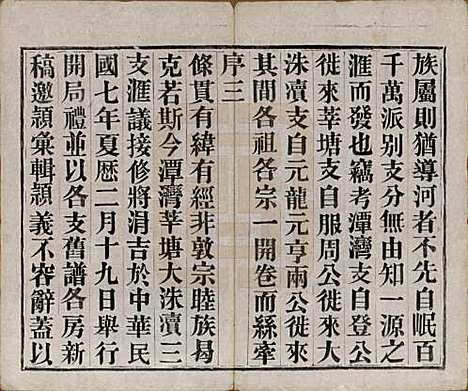 族屬則猶導河者不先自岷百
千萬派别支分無由知一源之
滙而發也竊考潭灣支自登公
徙來莘塘支自服周公徙來大
洙瀆支自元龍元亨兩公徙來
其間各祖各宗一開卷而緜牽
序三
條貫有緯有經非敦宗睦族曷
克若斯今潭灣莘塘大洙瀆三
支滙議接修將涓吉於中華民
國七年夏歷二月十九日舉行
開局禮並以各支舊譜各房新
稿邀頴彙輯頴義不容辭蓋以